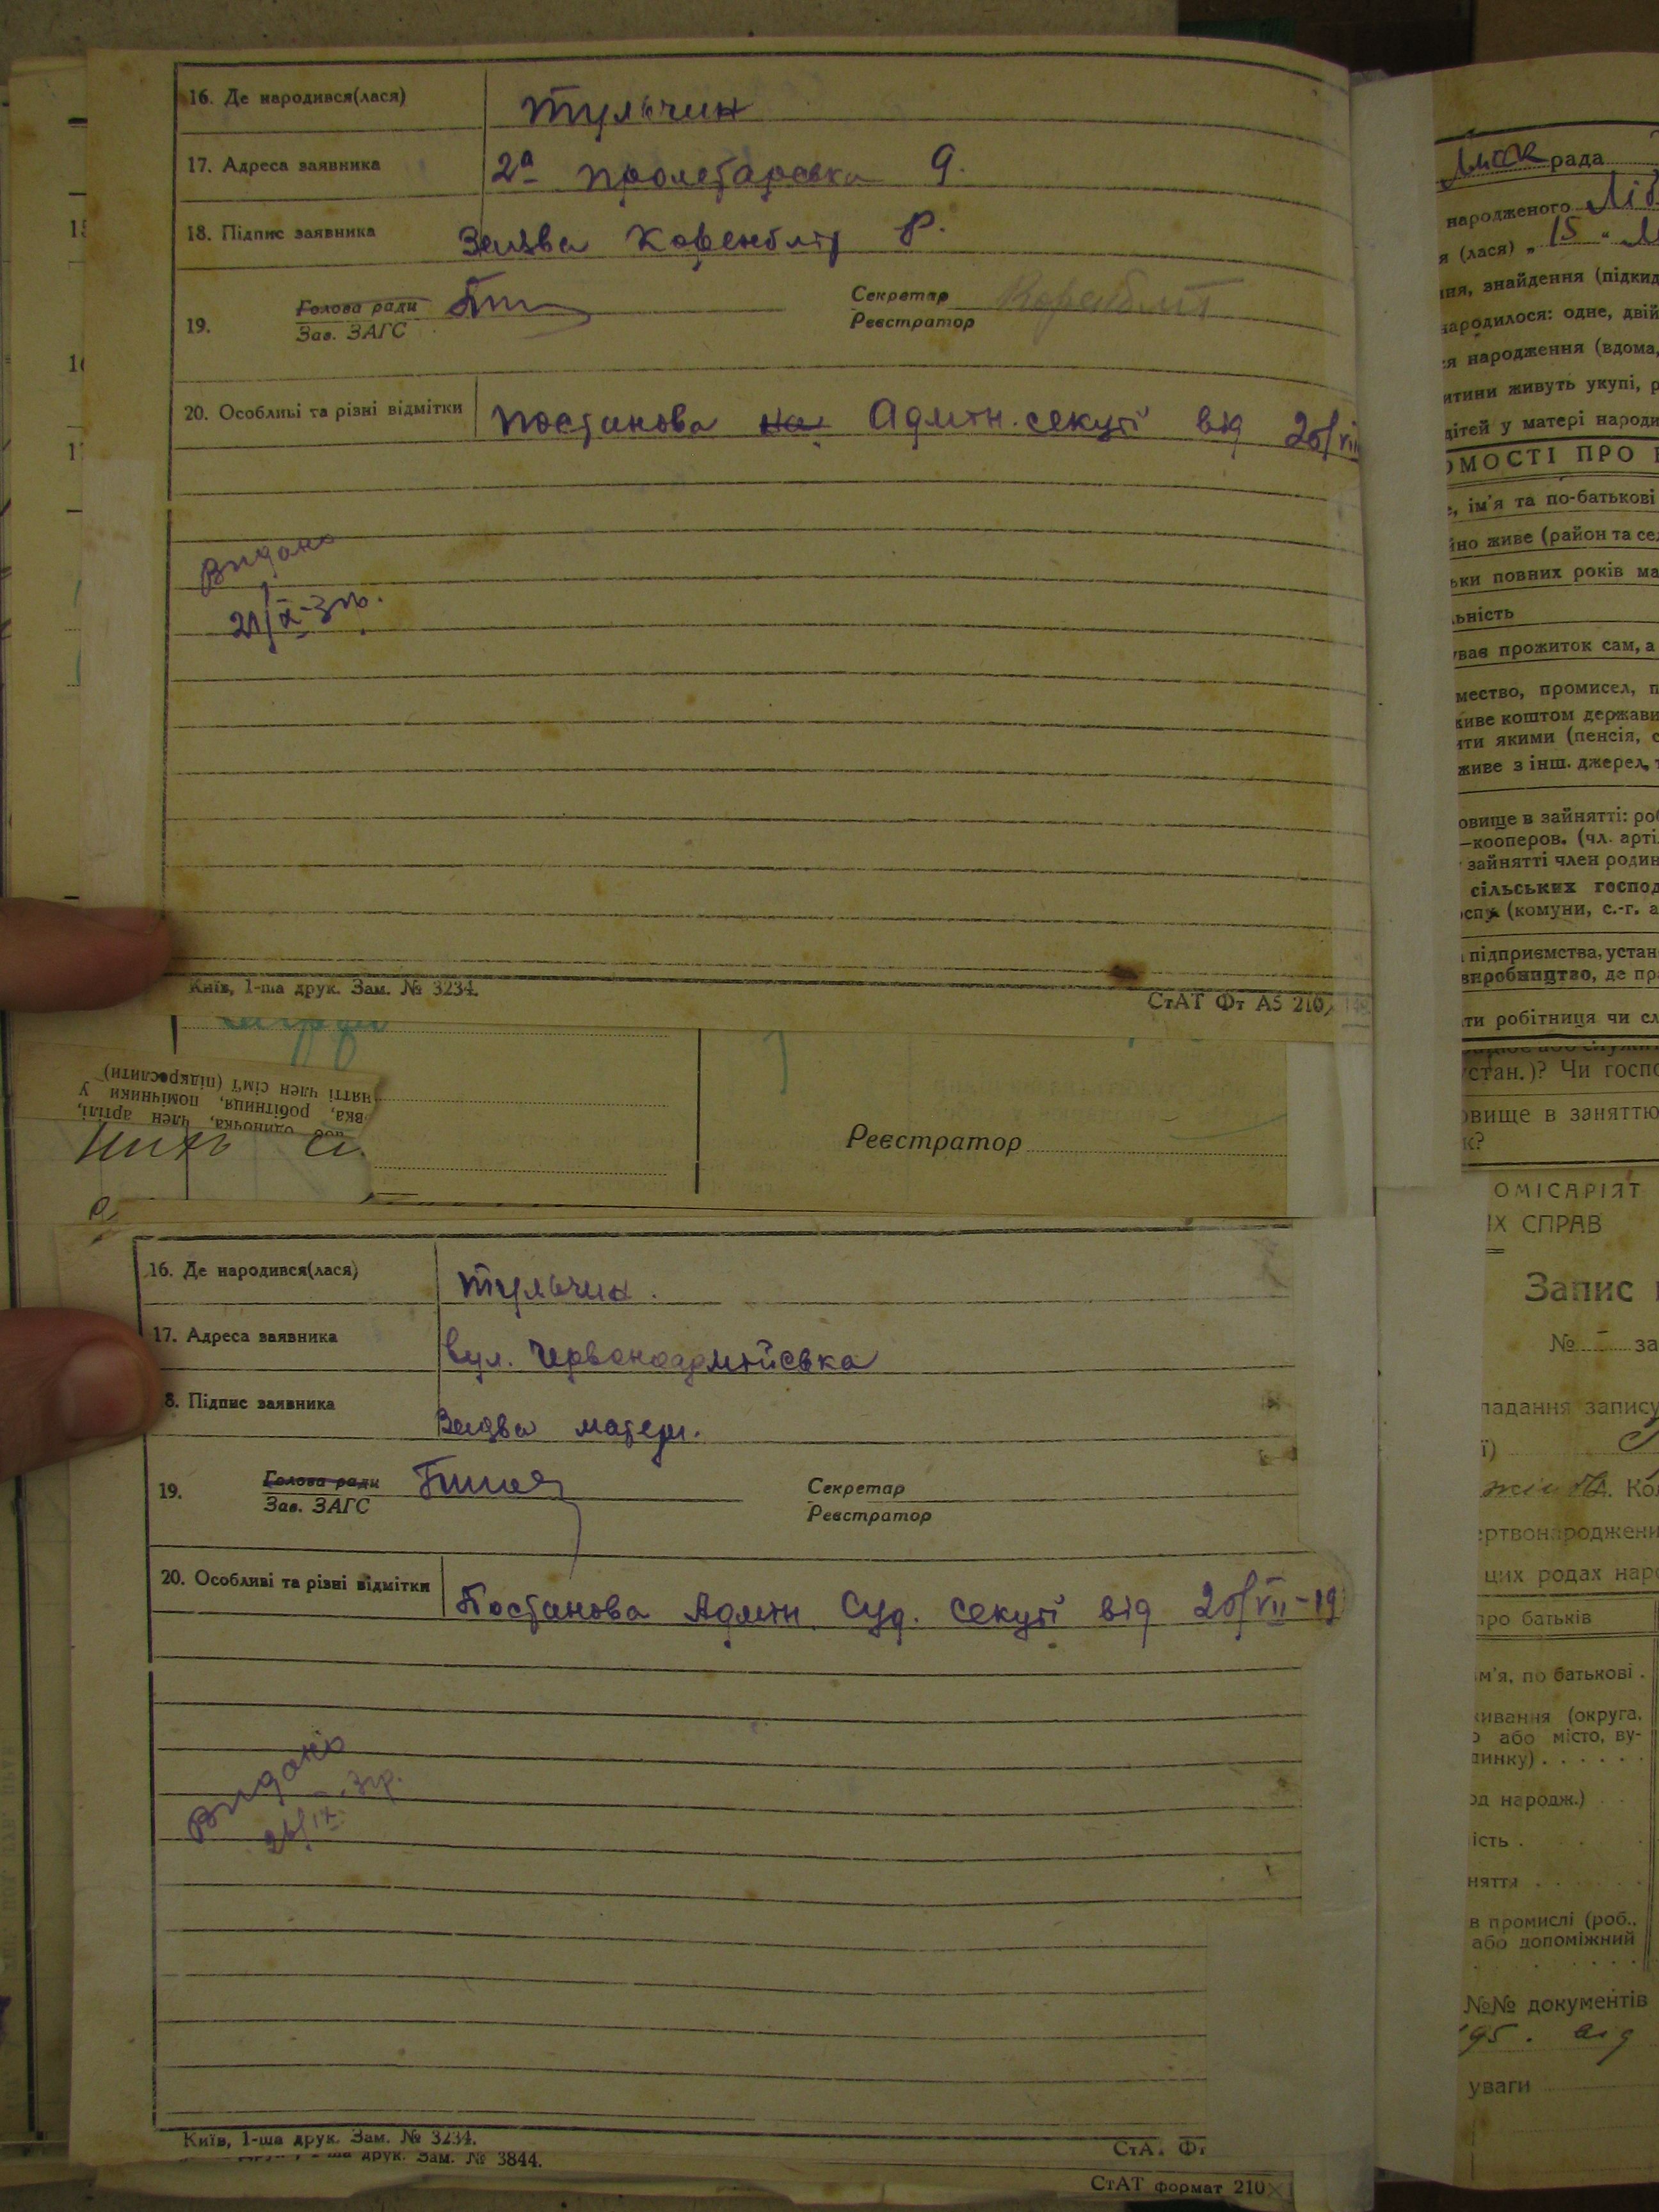 16. Де народився(лася) Тульчин
17. Адреса заявника 2а Пролетарська 9.
18. Підпис заявника Заява Коренбліт Р.
19. Голова ради
Зав. ЗАГС
Секретар Коренбліт
Реєстратор
20. Особливі та різні відмітки Постанова на Адмін. секції від 25/VII
Видано
21/IX-3 р.
Київ, 1-ша друк. Зам. № 3234.
СтАТ Фт А5 210
нятті член сім'ї (підкреслити)
вка, робітниця, помічники у
одиночка, член артілі,
Реєстратор
16. Де народився(лася) Тульчин.
17. Адреса заявника вул. Червоноармійська
8. Підпис заявника Заява матери.
19. Голова ради
Зав. ЗАГС
Секретар
Реєстратор
20. Особливі та різні відмітки Постанова Адмін. Суд. секції від 25/VII-19
Видано
26/IX. 3 р.
Київ, 1-ша друк. Зам. № 3234.
СтА. Фт
друк. Зам. № 3844.
СтАТ формат 210
рада
народженого Ліб
я (лася) „ 15 "
ня, знайдення (підкид
народилося: одне, двій
я народження (вдома,
итини живуть укупі, р
дітей у матері народи
ОМОСТІ ПРО
, ім'я та по-батькові
йно живе (район та сел
ьки повних років ма
льність
ував прожиток сам, а
мество, промисел, п
живе коштом держави
ити якими (пенсія, с
живе з інш. джерел, т
овище в зайнятті: роб
—кооперов. (чл. арті
зайнятті член родин
сільських господ
осп. (комуни, с.-г. а
підприємства, устан
виробництво, де пр
ти робітниця чи сл
устан.)? Чи госпо
овище в заняттю
к?
ОМІСАРІЯТ
ІХ СПРАВ
Запис
№ за
ладання запису
ї)
Кол
ертвонароджени
цих родах наро
про батьків
м'я, по батькові .
живання (округа,
о або місто, ву-
динку) . . . . .
од народж.) . .
ість .
няття . . . .
в промислі (роб.,
або допоміжний
№№ документів
95. від
уваги